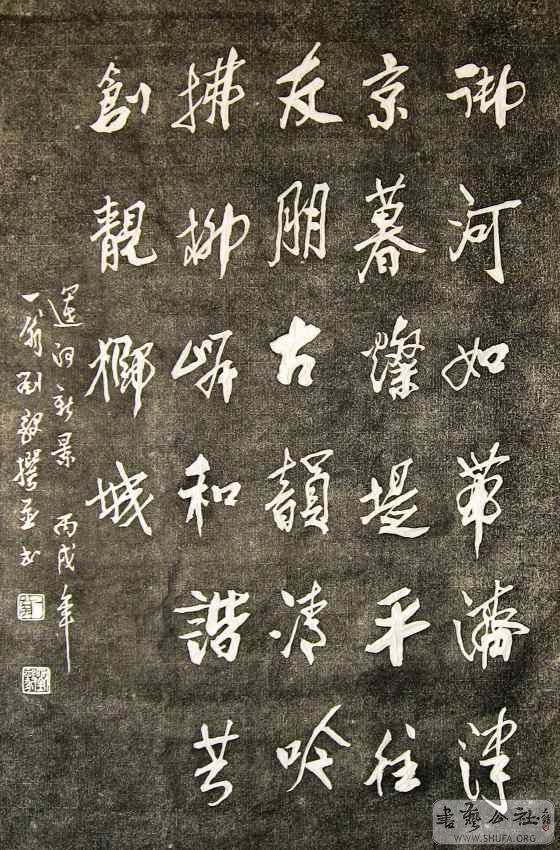 御河如帶濟津
京暮燦堤平往
友朋古韻清吟
拂柳岸和諧共
創靚獅城
運河新景 丙戌年
一翁刘毅撰並书
書藝公社
WWW.SHUFA.ORG